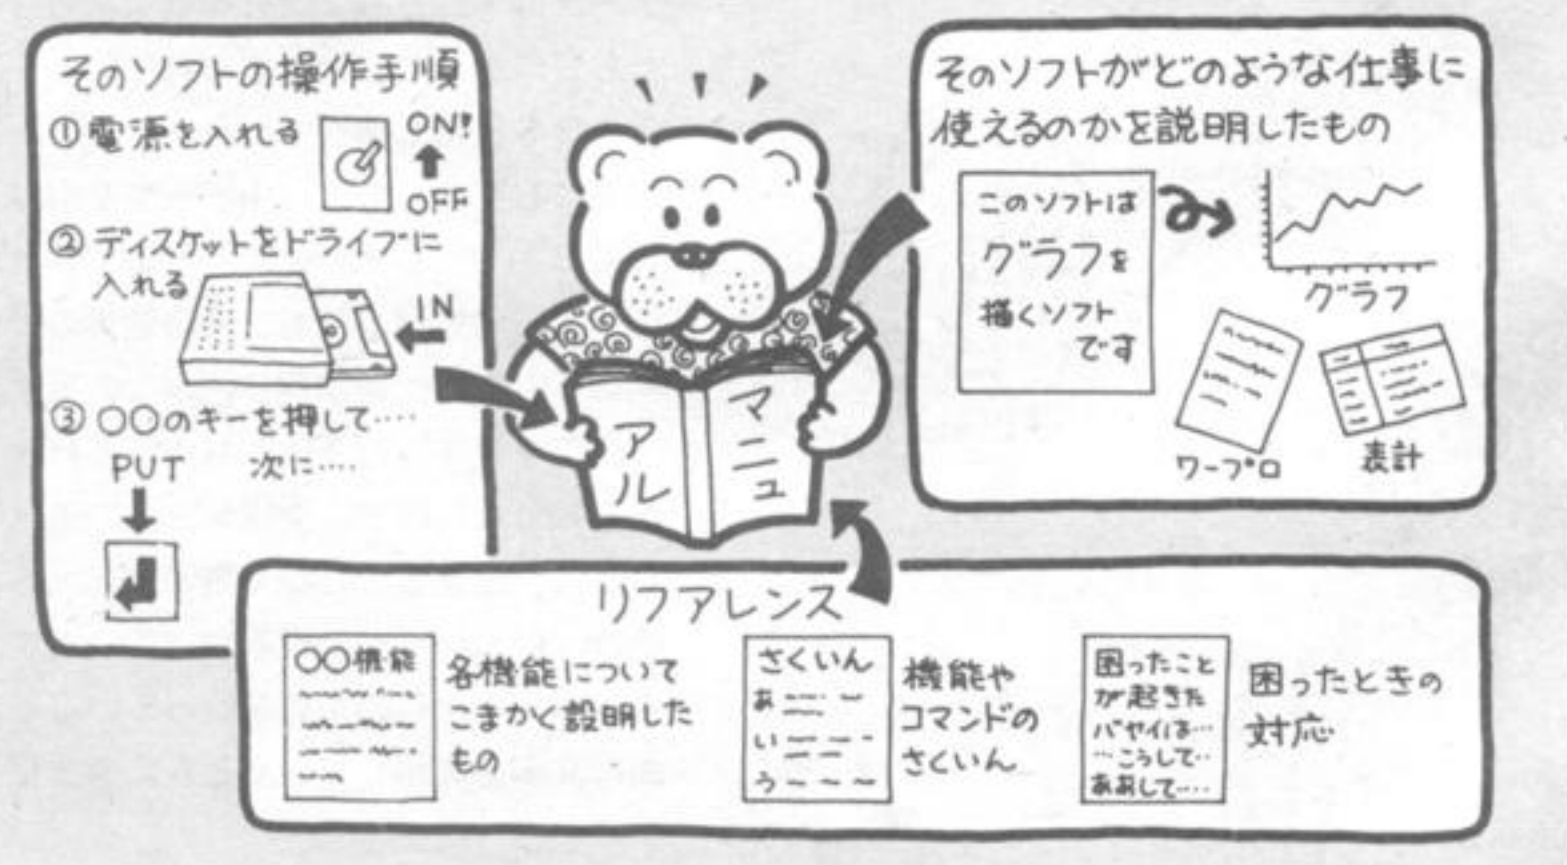 そのソフトの操作手順
①電源を入れる
ON!
OFF
②ディスケットをドライブに
入れる
IN
③○○のキーを押して‥‥
PUT 次に‥‥
マニュ
アル
そのソフトがどのような仕事に
使えるのかを説明したもの
このソフトは
グラフを
描くソフト
です
グラフ
ワープロ
表計
リファレンス
○○機能
各機能について
こまかく説明した
もの
さくいん
あ
い
う
機能や
コマンドの
さくいん
困ったこと
が起きた
バヤイは…
…こうして‥
ああして‥‥
困ったときの
対応